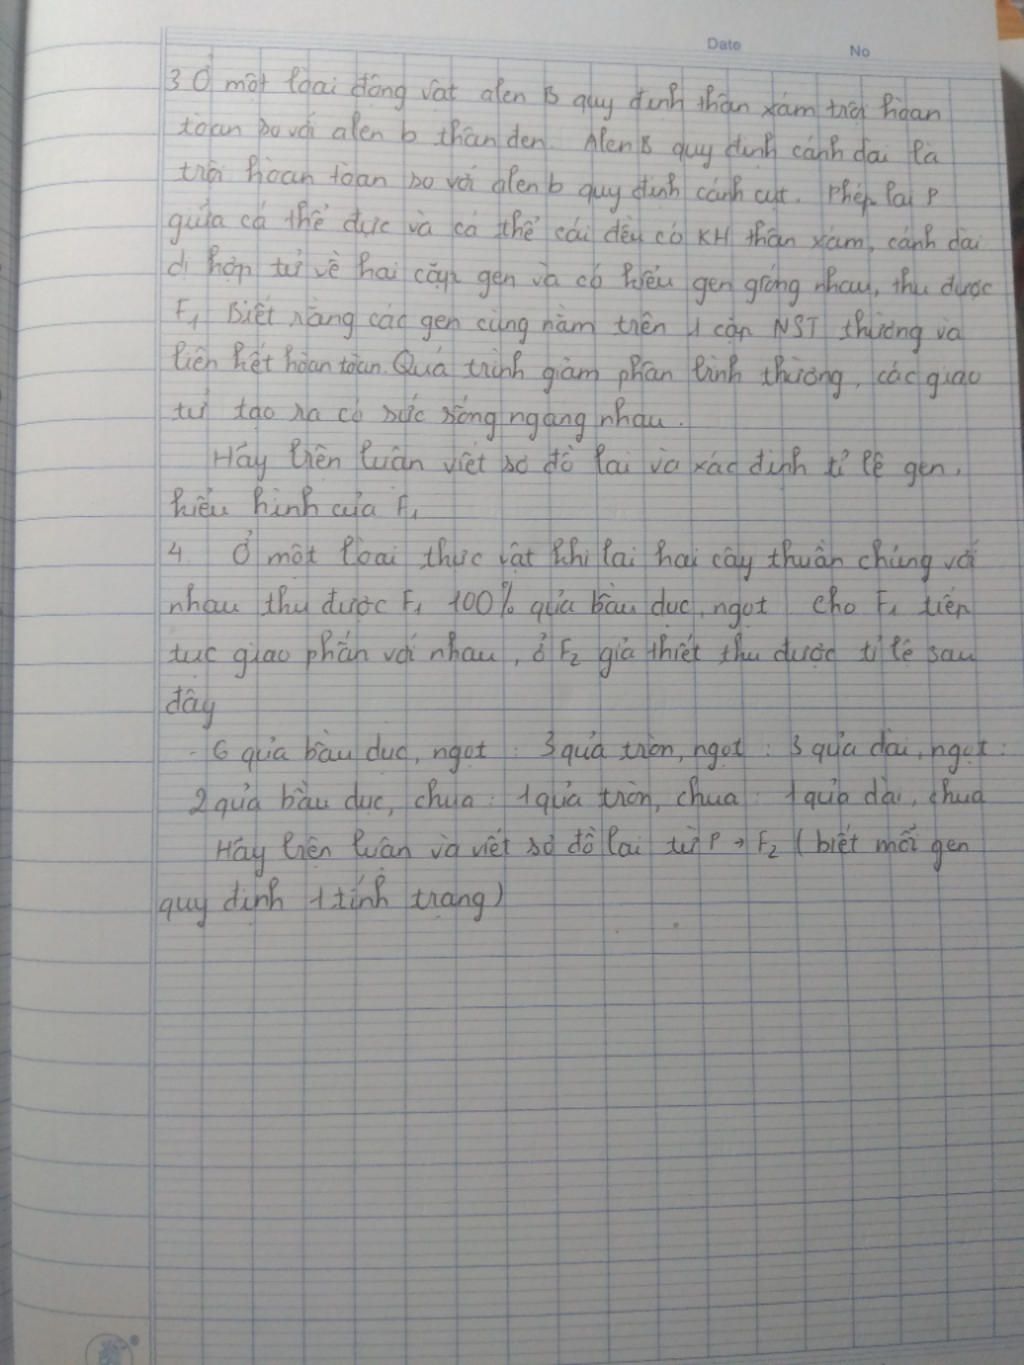 Date No
3 Ở một loài động vật alen B quy định thân xám trội hoàn
toàn so với alen b thân đen. Alen B quy định cánh dài là
trội hoàn toàn so với alen b quy định cánh cụt. Phép lai P
giữa cá thể đực và cá thể cái đều có KH thân xám, cánh dài
dị hợp tử về hai cặp gen và có kiểu gen giống nhau, thu được
F1 Biết rằng các gen cùng nằm trên 1 cặp NST thường và
liên kết hoàn toàn. Quá trình giảm phân bình thường, các giao
tử tạo ra có sức sống ngang nhau.
Hãy biện luận viết sơ đồ lai và xác định tỉ lệ gen,
kiểu hình của F1
4 Ở một loài thực vật khi lai hai cây thuần chủng với
nhau thu được F1 100% quả bầu dục, ngọt cho F1 tiếp
tục giao phấn với nhau, ở F2 giả thiết thu được tỉ lệ sau
đây
- 6 quả bầu dục, ngọt : 3 quả tròn, ngọt : 3 quả dài, ngọt :
2 quả bầu dục, chua : 1 quả tròn, chua : 1 quả dài, chua
Hãy biện luận và viết sơ đồ lai từ P → F2 (biết mỗi gen
quy định 1 tính trạng)